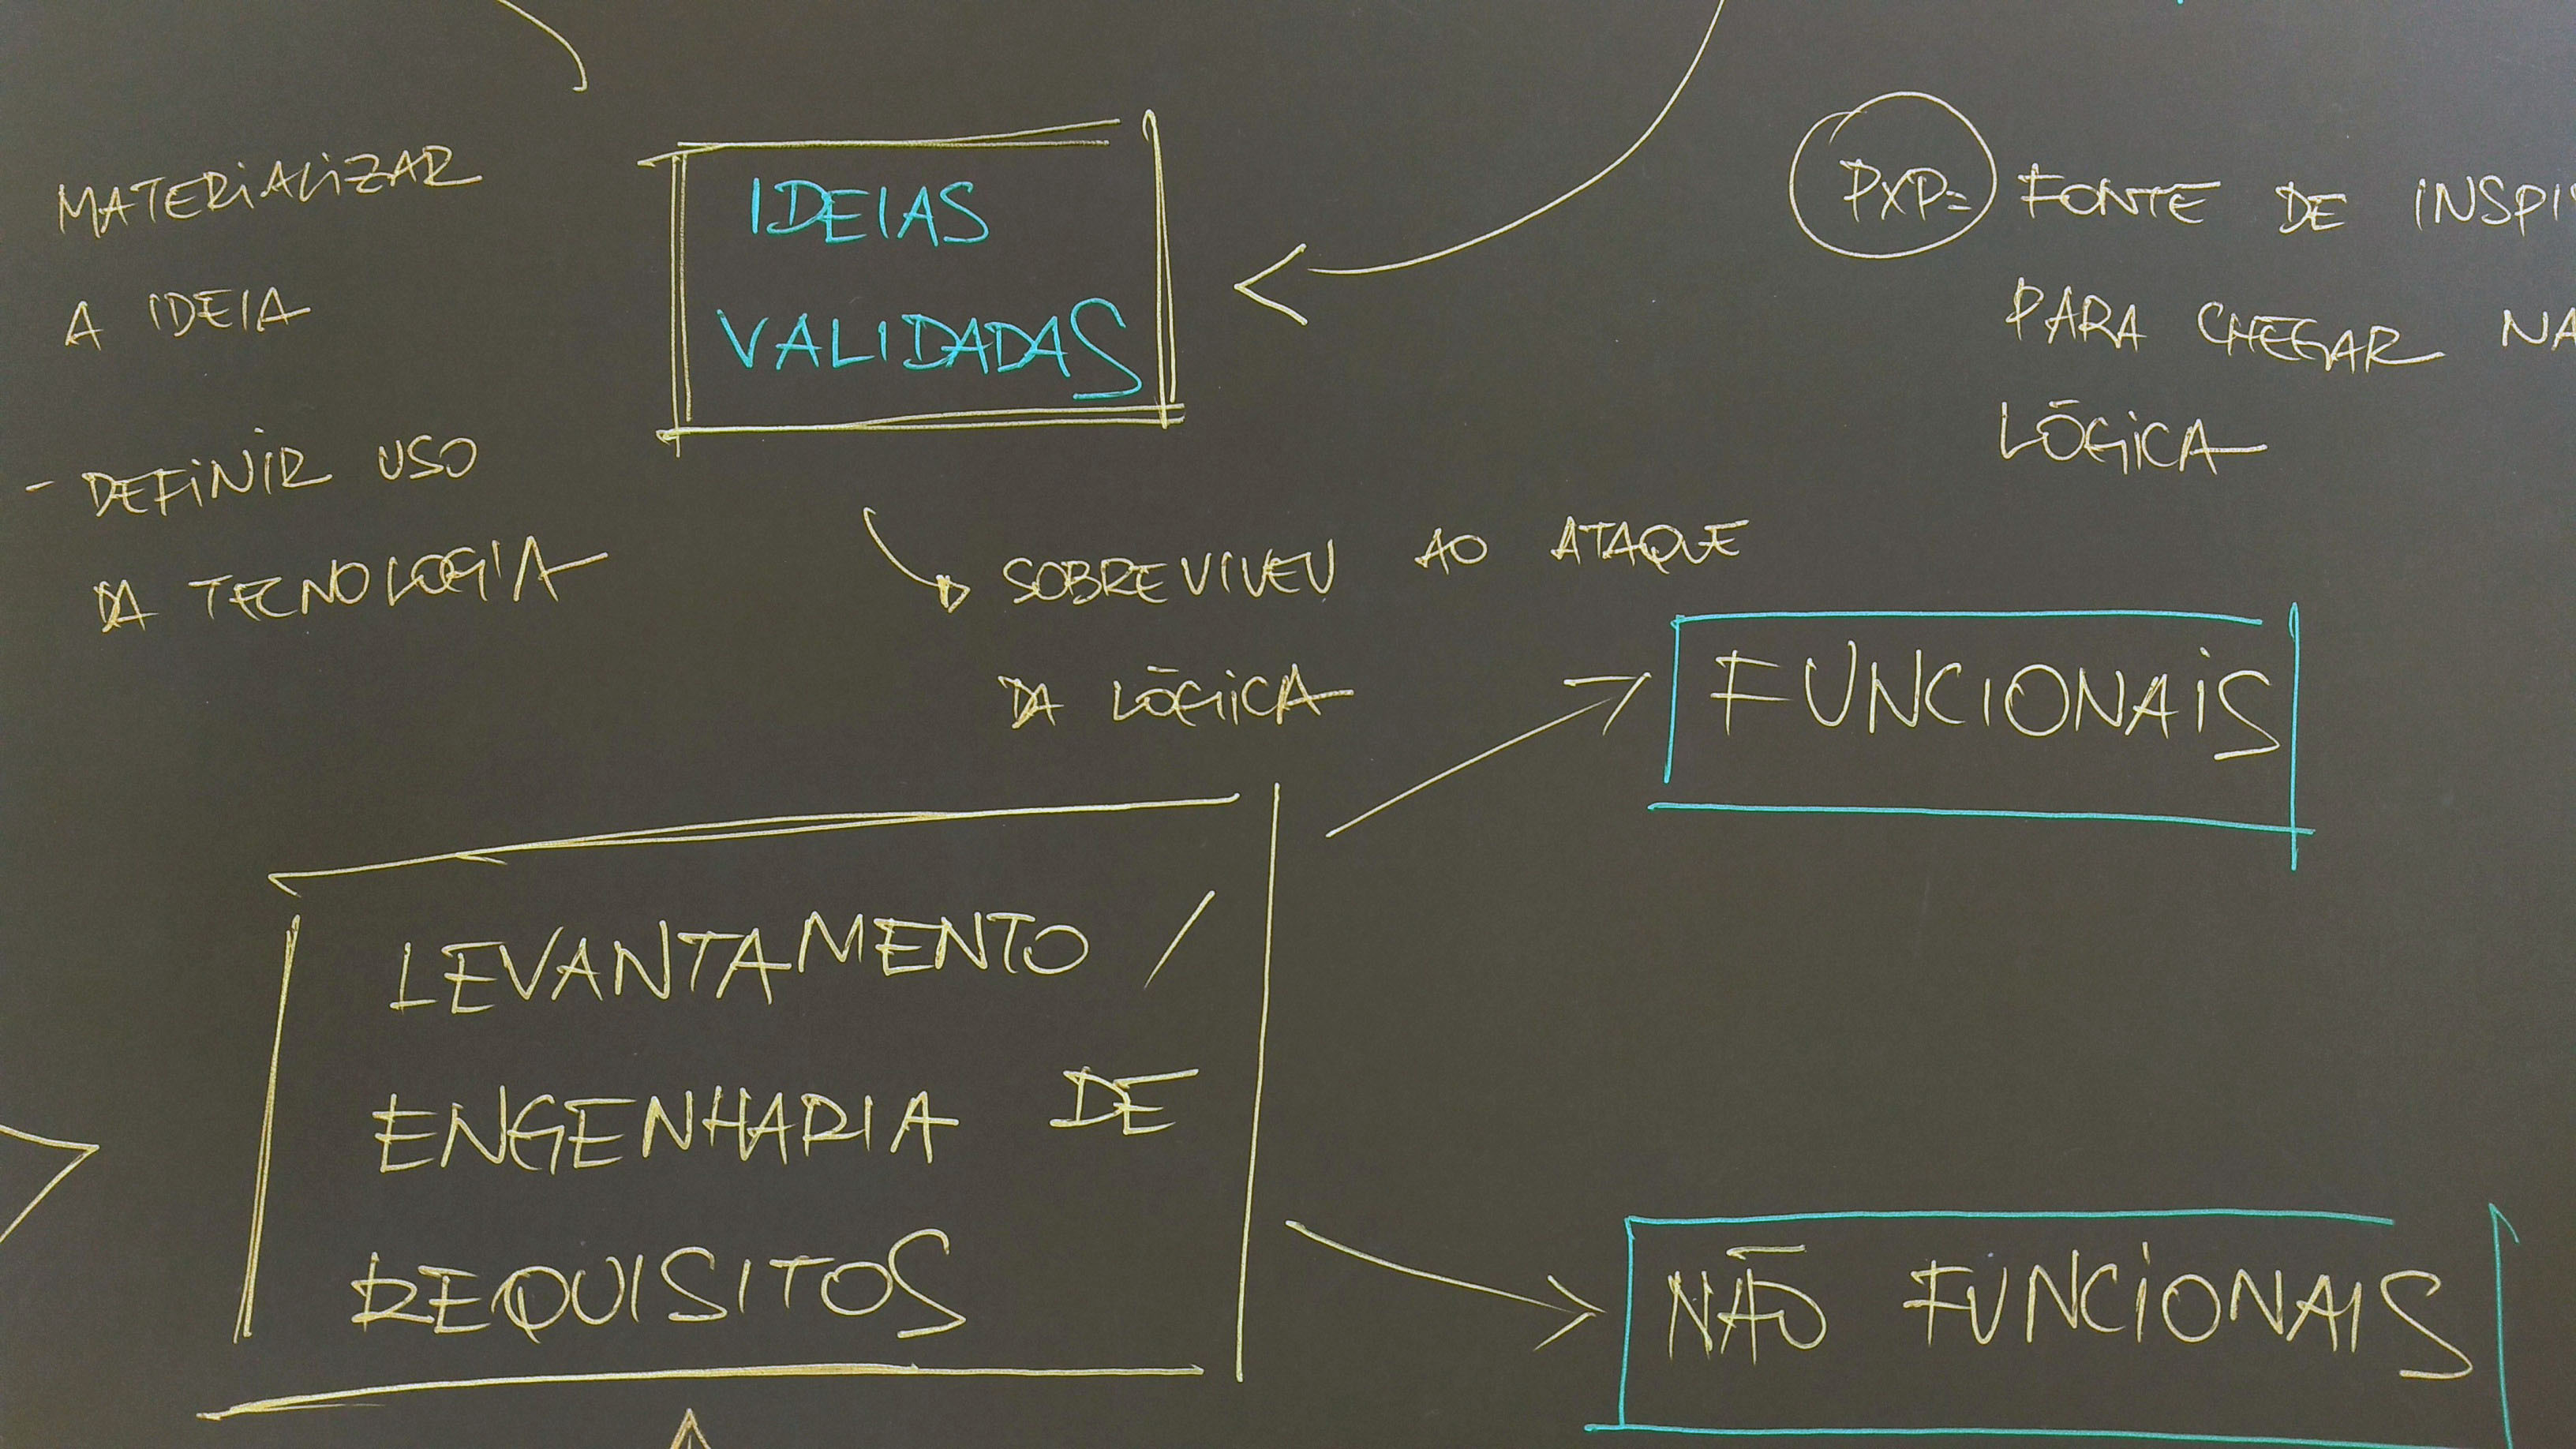 MATERIALIZAR
A IDEIA
- DEFINIR USO
DA TECNOLOGIA
IDEIAS
VALIDADAS
PXP= FONTE DE INSPI
PARA CHEGAR NA
LÓGICA
SOBREVIVEU AO ATAQUE
DA LÓGICA
FUNCIONAIS
LEVANTAMENTO /
ENGENHARIA DE
REQUISITOS
NÃO FUNCIONAIS